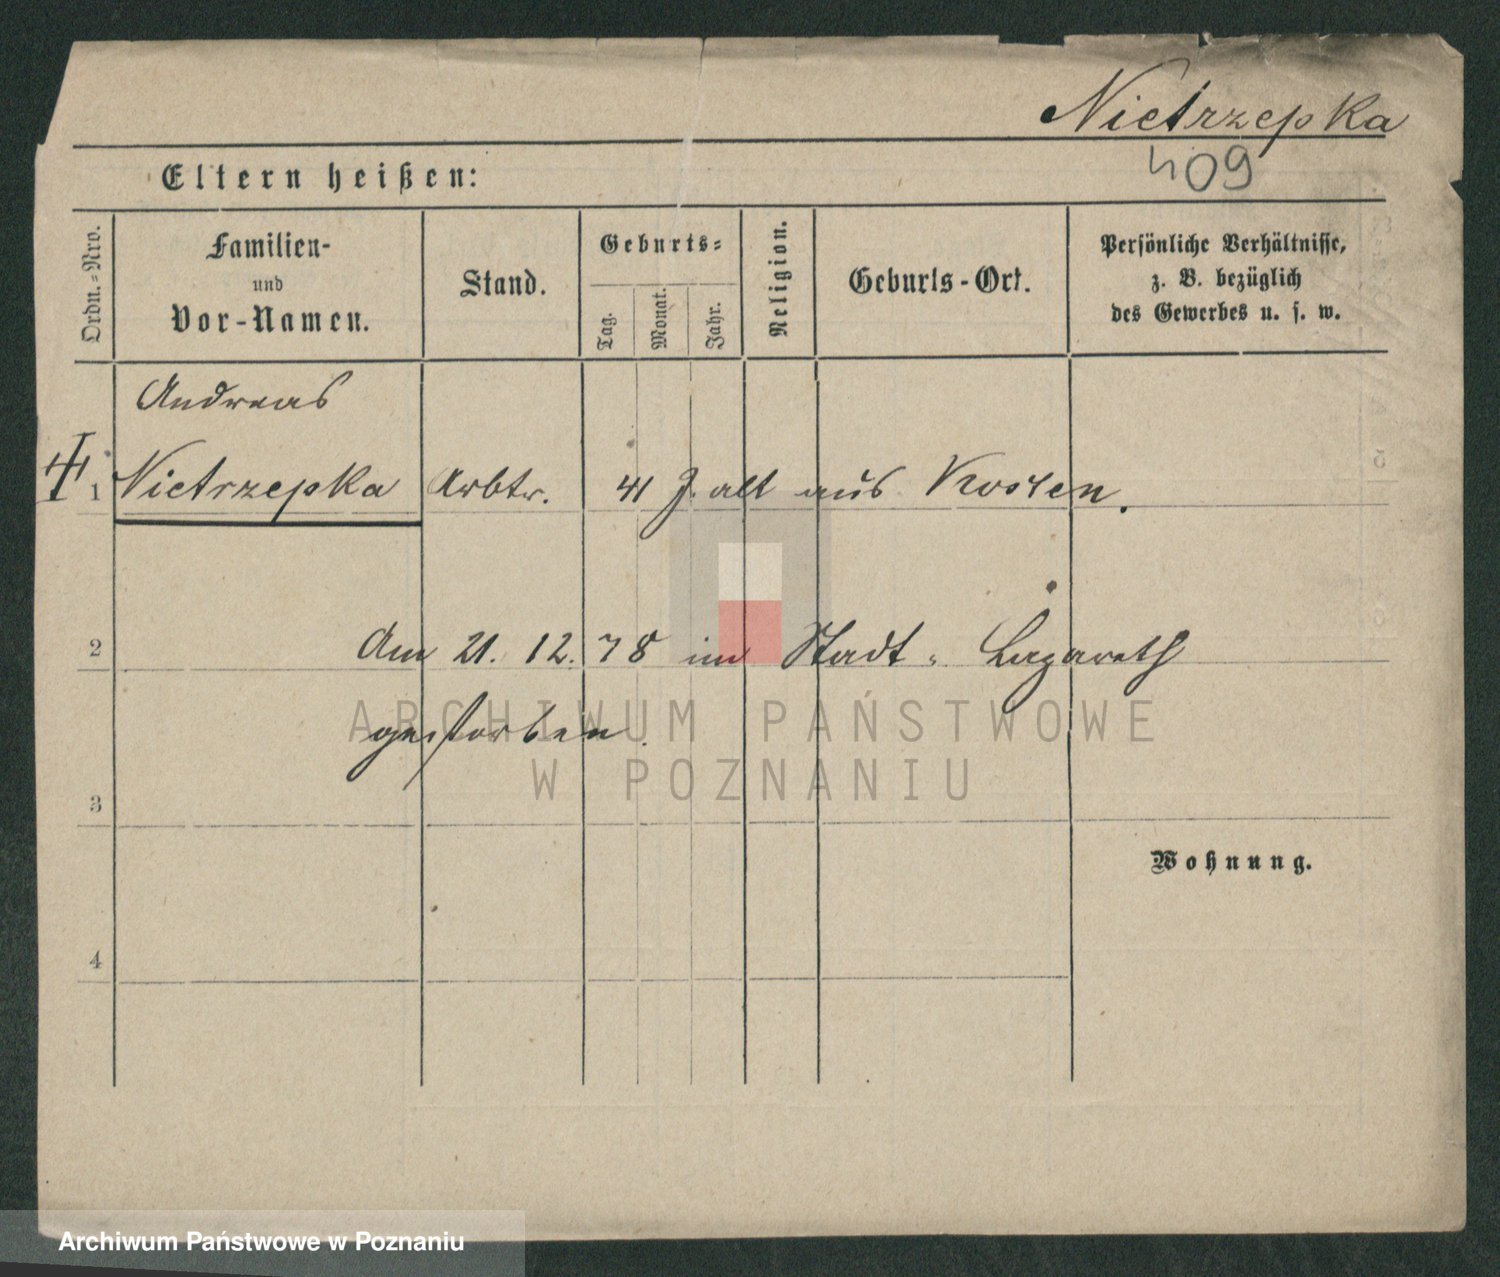 Nietrzepka
409
Eltern heißen:
Ordn.-Nro.
Familien-
und
Vor-Namen.
Stand.
Geburts-
Tag.
Monat.
Jahr.
Religion.
Geburts-Ort.
Persönliche Verhältnisse,
z. B. bezüglich
des Gewerbes u. s. w.
Andreas
1 Nietrzepka Arbtr. 41 J. alt aus Kosten.
2 Am 21. 12. 78 im Stadt-Lazareth
gestorben.
ARCHIWUM PAŃSTWOWE
W POZNANIU
3
Wohnung.
4
Archiwum Państwowe w Poznaniu